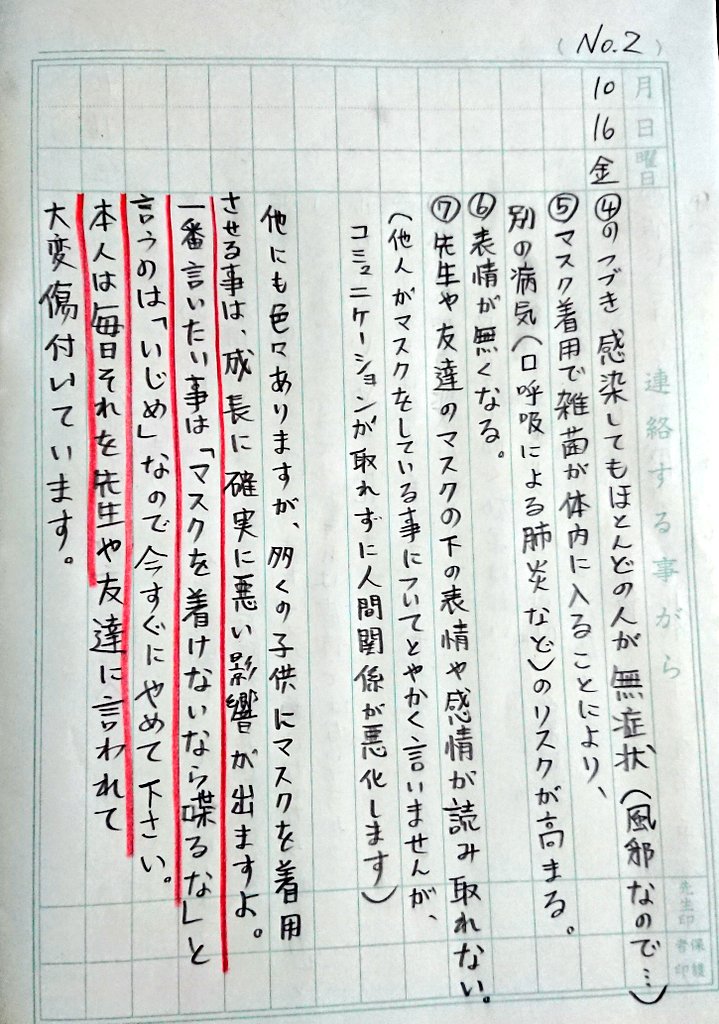 (No.2)
月日曜日
連絡する事がら
先生印
保護者印
10 16 金
④のつづき 感染してもほとんどの人が無症状(風邪なので…)
⑤マスク着用で雑菌が体内に入ることにより、
別の病気(口呼吸による肺炎など)のリスクが高まる。
⑥表情が無くなる。
⑦先生や友達のマスクの下の表情や感情が読み取れない。
(他人がマスクをしている事についてとやかく言いませんが、
コミュニケーションが取れずに人間関係が悪化します)
他にも色々ありますが、多くの子供にマスクを着用
させる事は、成長に確実に悪い影響が出ますよ。
一番言いたい事は「マスクを着けないなら喋るな」と
言うのは「いじめ」なので今すぐにやめて下さい。
本人は毎日それを先生や友達に言われて
大変傷付いています。